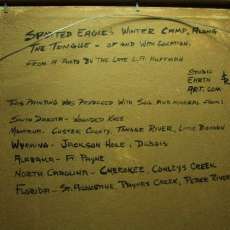 SPOTTED EAGLE'S WINTER CAMP, ALONG
THE TONGUE - OF AND WITH LOCATION.
FROM A PHOTO BY THE LATE L.A. HUFFMAN
STUDIO
EARTH
ART.COM
THIS PAINTING WAS PRODUCED WITH SOIL AND MINERAL FROM:
SOUTH DAKOTA - WOUNDED KNEE
MONTANA - CUSTER COUNTY, TONGUE RIVER, LITTLE BIGHORN
WYOMING - JACKSON HOLE, DUBOIS
ALABAMA - FT. PAYNE
NORTH CAROLINA - CHEROKEE, CONLEYS CREEK
FLORIDA - ST. AUGUSTINE, PAYNES CREEK, PEACE RIVER